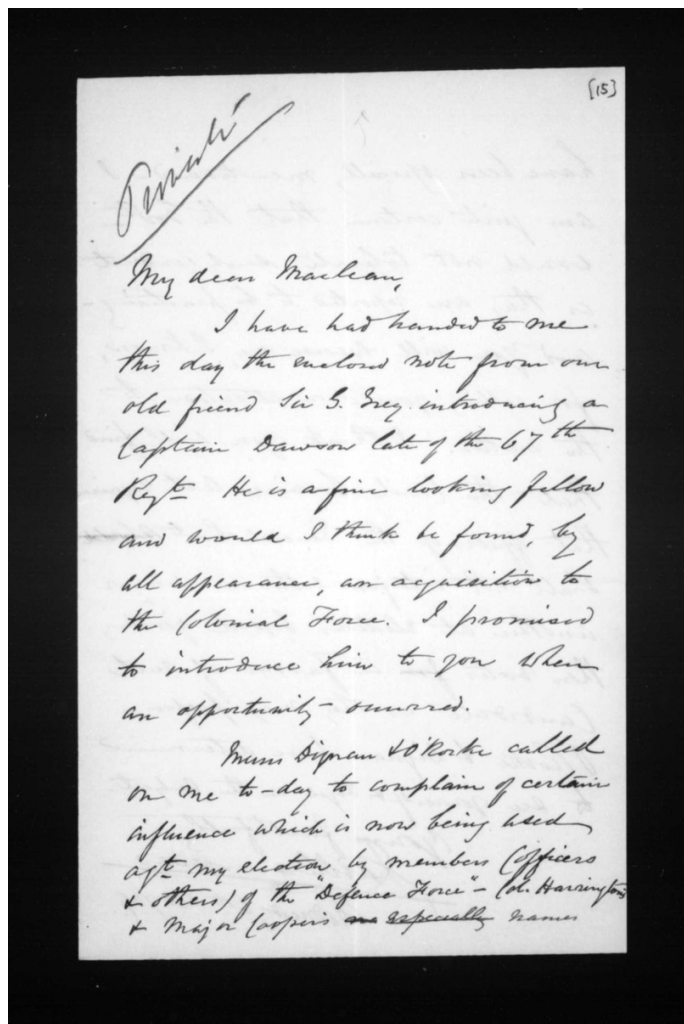 [15]
Private
My dear Maclean,
I have had handed to me
this day the enclosed note from our
old friend Sir G. Grey introducing a
Captain Dawson late of the 67th
Regt. He is a fine looking fellow
and would I think be found, by
all appearance, an acquisition to
the Colonial Force. I promised
to introduce him to you when
an opportunity occurred.
Messrs Dignan & O'Rorke called
on me to-day to complain of certain
influence which is now being used
agt. my election by members (officers
& others) of the "Defence Force" - Col. Harrington's
& Major Cooper's are especially names